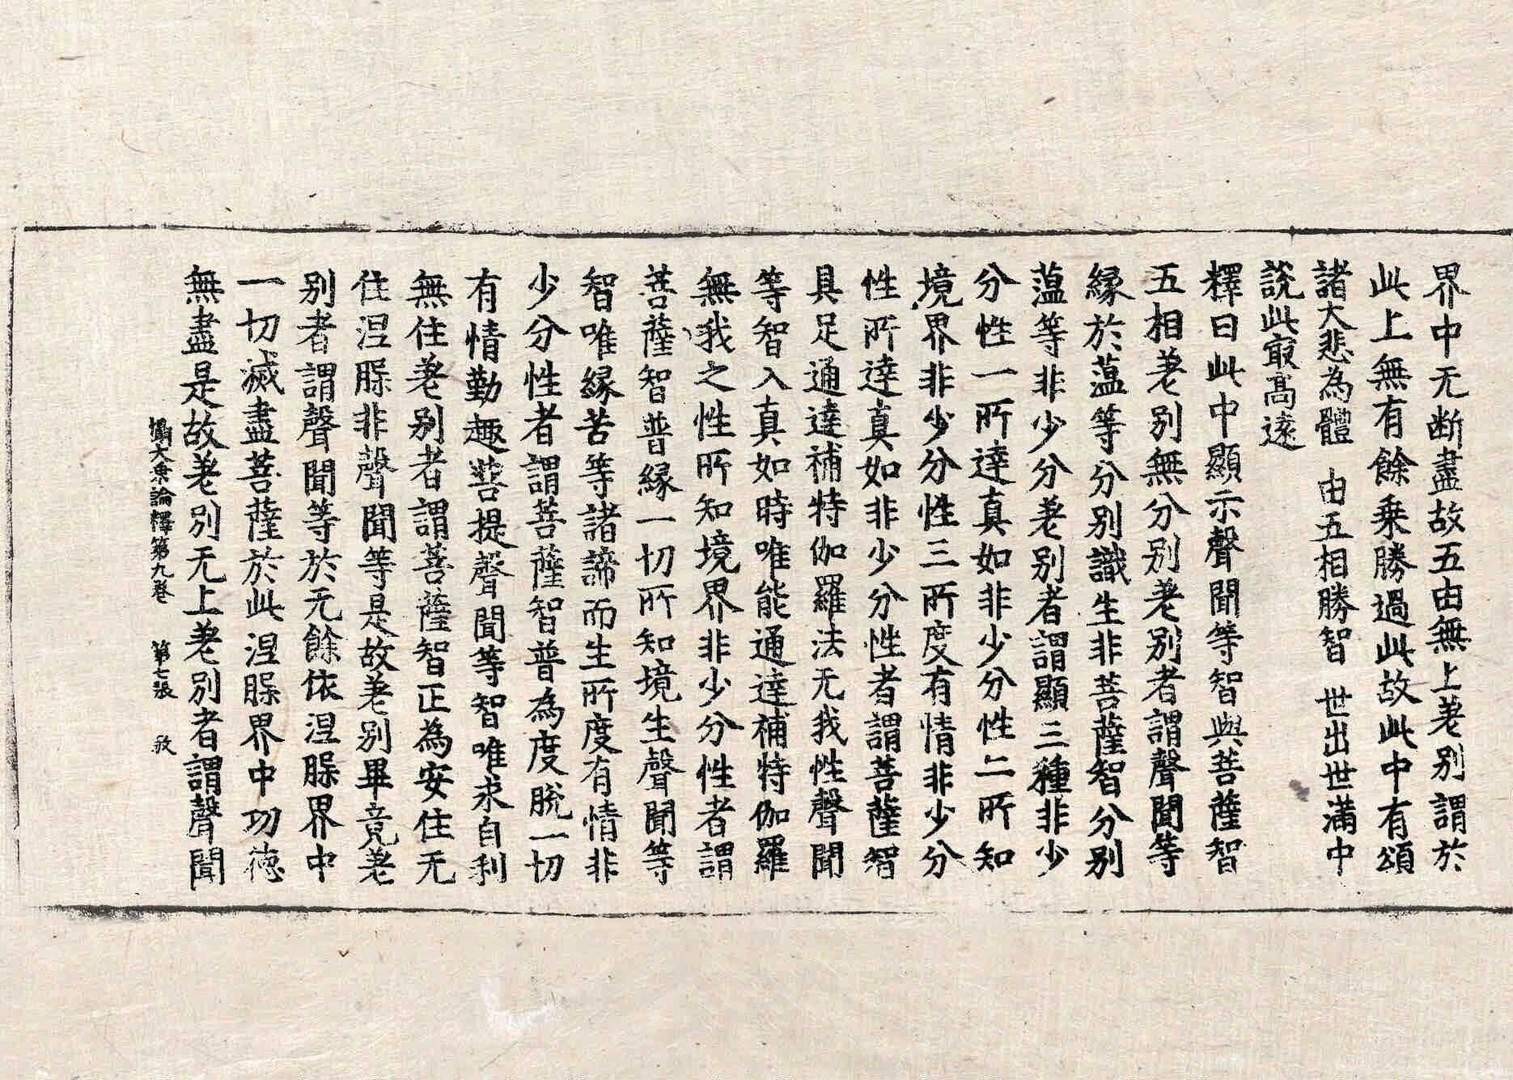 界中无断盡故五由無上差别謂於
此上無有餘乗勝過此故此中有頌
諸大悲為體　由五相勝智　世出世滿中
説此㝡髙逺
釋曰此中顯示聲聞等智與菩薩智
五相差别無分别差别者謂聲聞等
縁於薀等分别識生非菩薩智分别
薀等非少分差别者謂顯三種非少
分性一所逹真如非少分性二所知
境界非少分性三所度有情非少分
性所逹真如非少分性者謂菩薩智
具足通逹補特伽羅法无我性聲聞
等智入真如時唯能通逹補特伽羅
無我之性所知境界非少分性者謂
菩薩智普縁一切所知境生聲聞等
智唯縁苦等諸諦而生所度有情非
少分性者謂菩薩智普為度脱一切
有情勤趣菩提聲聞等智唯求自利
無住差别者謂菩薩智正為安住无
住涅槃非聲聞等是故差别畢竟差
别者謂聲聞等於无餘依涅槃界中
一切滅盡菩薩於此涅槃界中功徳
無盡是故差别无上差别者謂聲聞
攝大乗論釋第九卷　第七張　敦